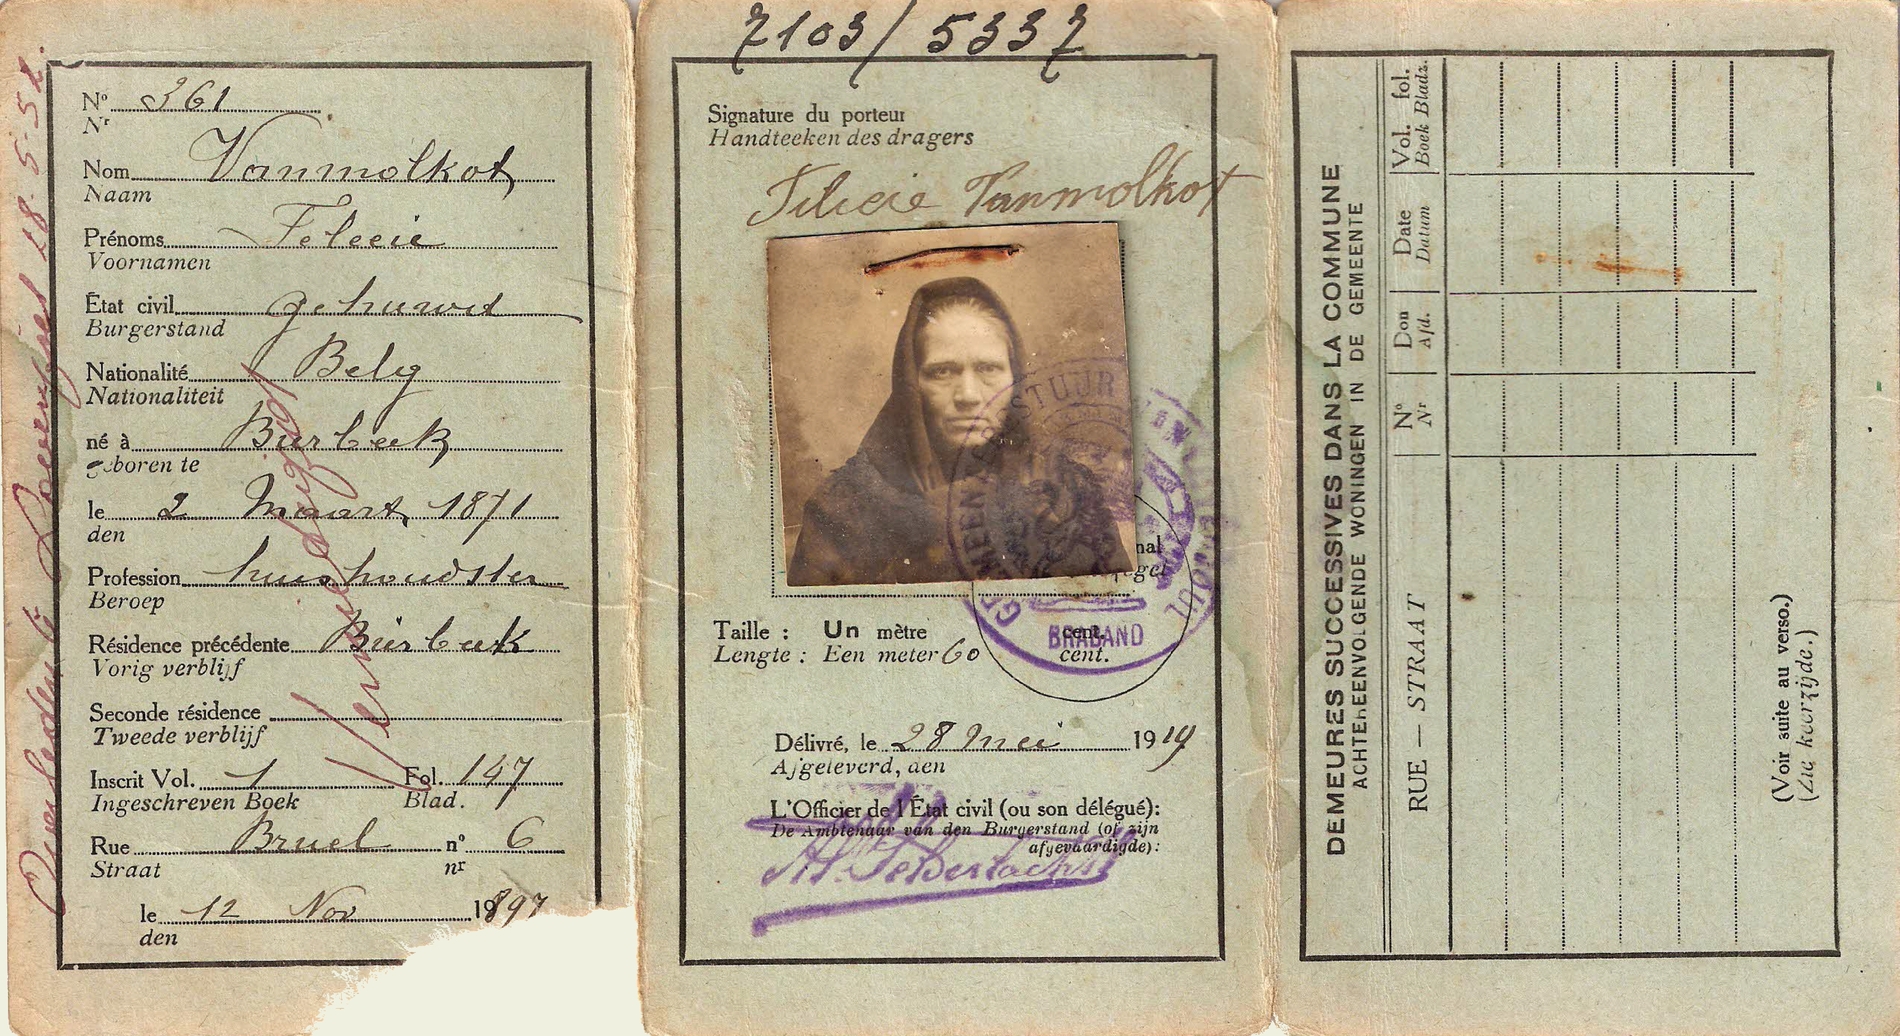 Overleden te Loevenjoel 18.5.52.
Nº 361
Nr
Nom Vanmolkot
Naam
Prénoms Feleeie
Voornamen
État civil gehuwd
Burgerstand
Nationalité Belg
Nationaliteit
né à Bierbeek
geboren te
le 2 Maart 1871
den
Profession huishoudster
Beroep
Résidence précédente Bierbeek
Vorig verblijf
Seconde résidence
Tweede verblijf
Inscrit Vol. 1 Fol. 147
Ingeschreven Boek Blad.
Rue Bruel nº 6
Straat nr
le 12 Nov 1897
den
Vernietigd
7103/5337
Signature du porteur
Handteeken des dragers
Felicie Vanmolkot
GEMEENTEBESTUUR
BRABAND
nal
Taille : Un mètre cent.
Lengte : Een meter 60 cent.
Délivré, le 28 Mei 1919
Afgeleverd, den
L'Officier de l'État civil (ou son délégué):
De Ambtenaar van den Burgerstand (of zijn
afgevaardigde):
DEMEURES SUCCESSIVES DANS LA COMMUNE
ACHTEREENVOLGENDE WONINGEN IN DE GEMEENTE
RUE — STRAAT
Nº
Nr
Don
Afd.
Date
Datum
Vol. fol.
Boek Bladz.
(Voir suite au verso.)
(Zie keerzijde.)